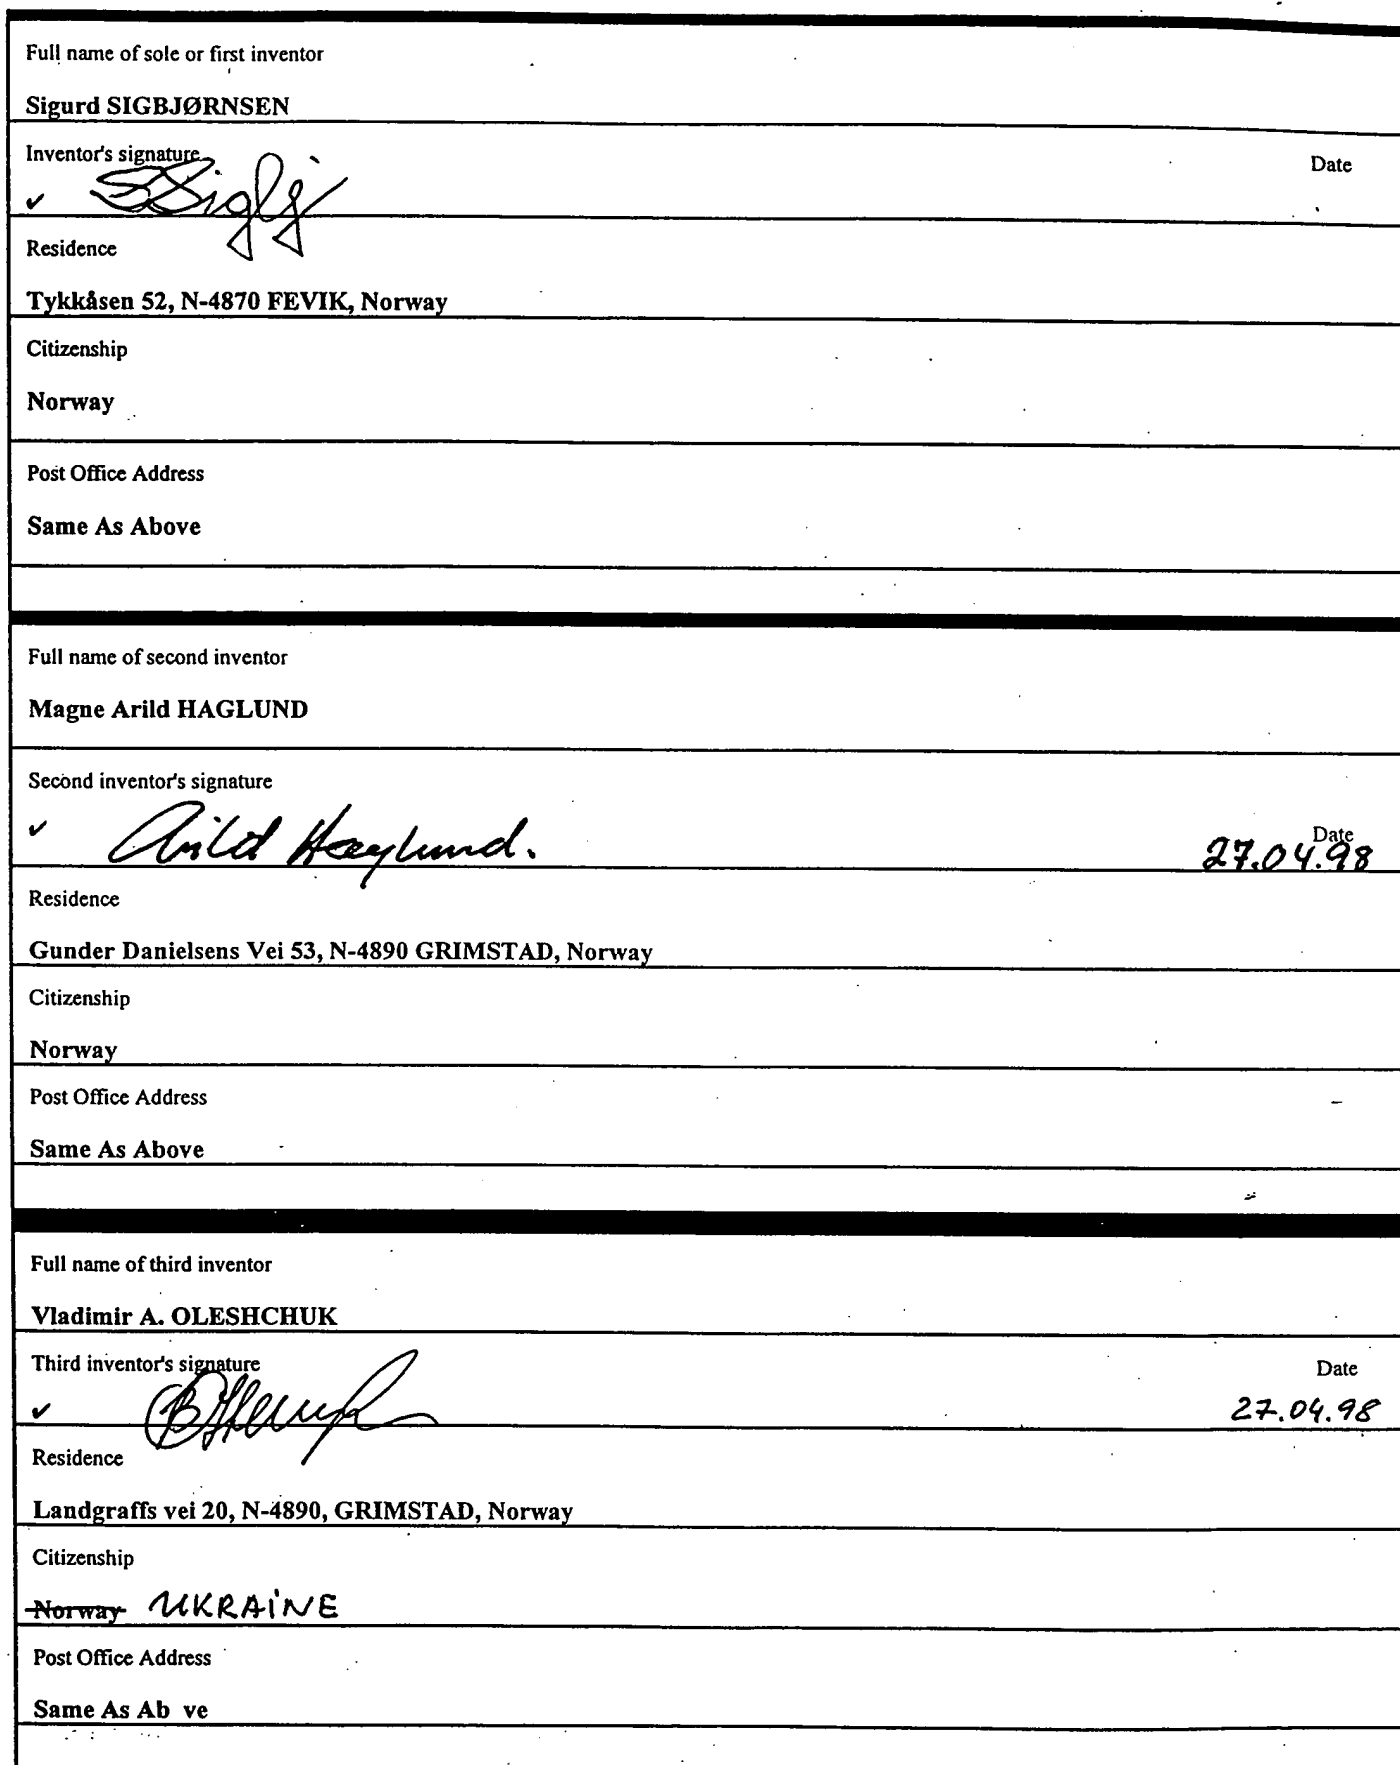 Full name of sole or first inventor
Sigurd SIGBJØRNSEN
Inventor's signature
Date
✓
Residence
Tykkåsen 52, N-4870 FEVIK, Norway
Citizenship
Norway
Post Office Address
Same As Above
Full name of second inventor
Magne Arild HAGLUND
Second inventor's signature
✓ Arild Haglund.
Date
27.04.98
Residence
Gunder Danielsens Vei 53, N-4890 GRIMSTAD, Norway
Citizenship
Norway
Post Office Address
Same As Above
Full name of third inventor
Vladimir A. OLESHCHUK
Third inventor's signature
Date
✓ 27.04.98
Residence
Landgraffs vei 20, N-4890, GRIMSTAD, Norway
Citizenship
Norway UKRAINE
Post Office Address
Same As Ab ve